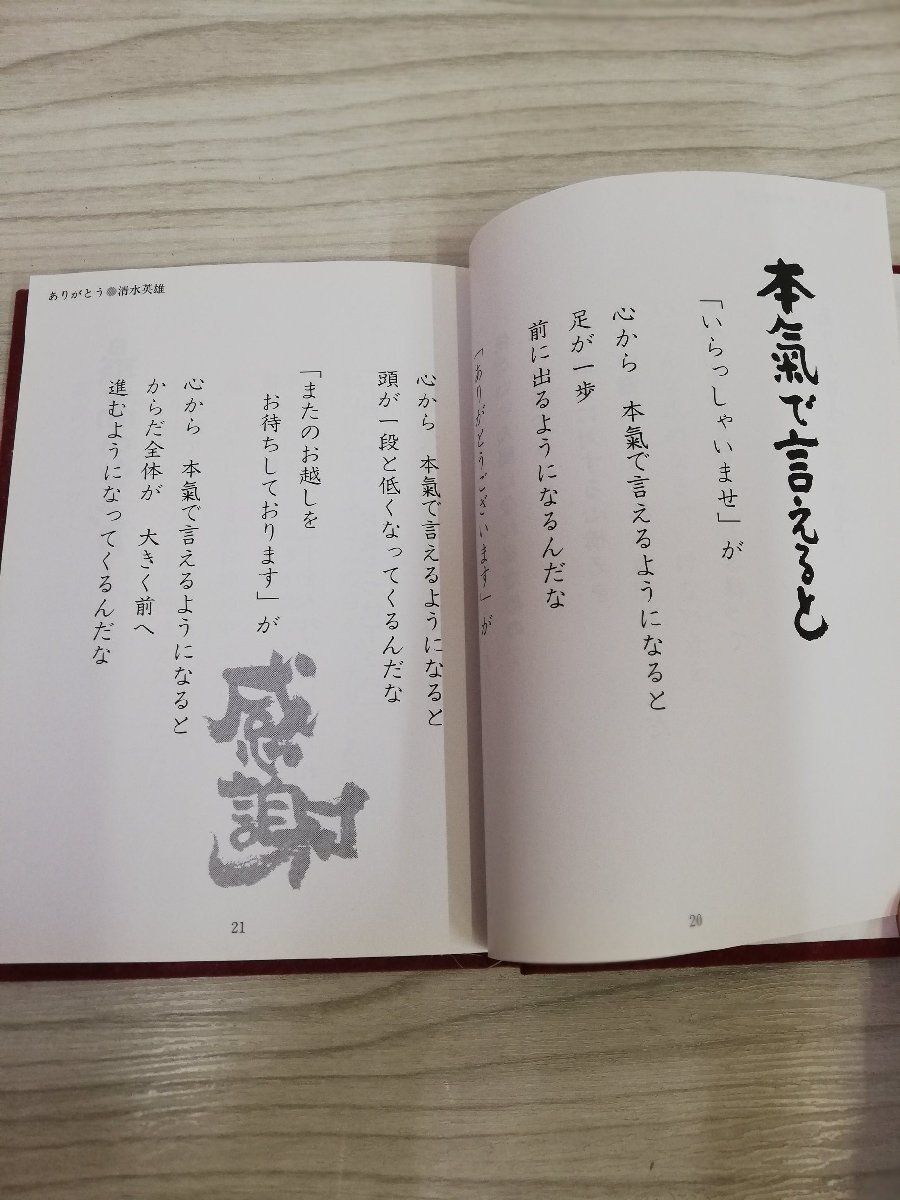 本氣で言えると
「いらっしゃいませ」が
心から 本氣で言えるようになると
足が一歩
前に出るようになるんだな
「ありがとうございます」が
20
ありがとう●清水英雄
心から 本氣で言えるようになると
頭が一段と低くなってくるんだな
「またのお越しを
お待ちしております」が
心から 本氣で言えるようになると
からだ全体が 大きく前へ
進むようになってくるんだな
感謝
21